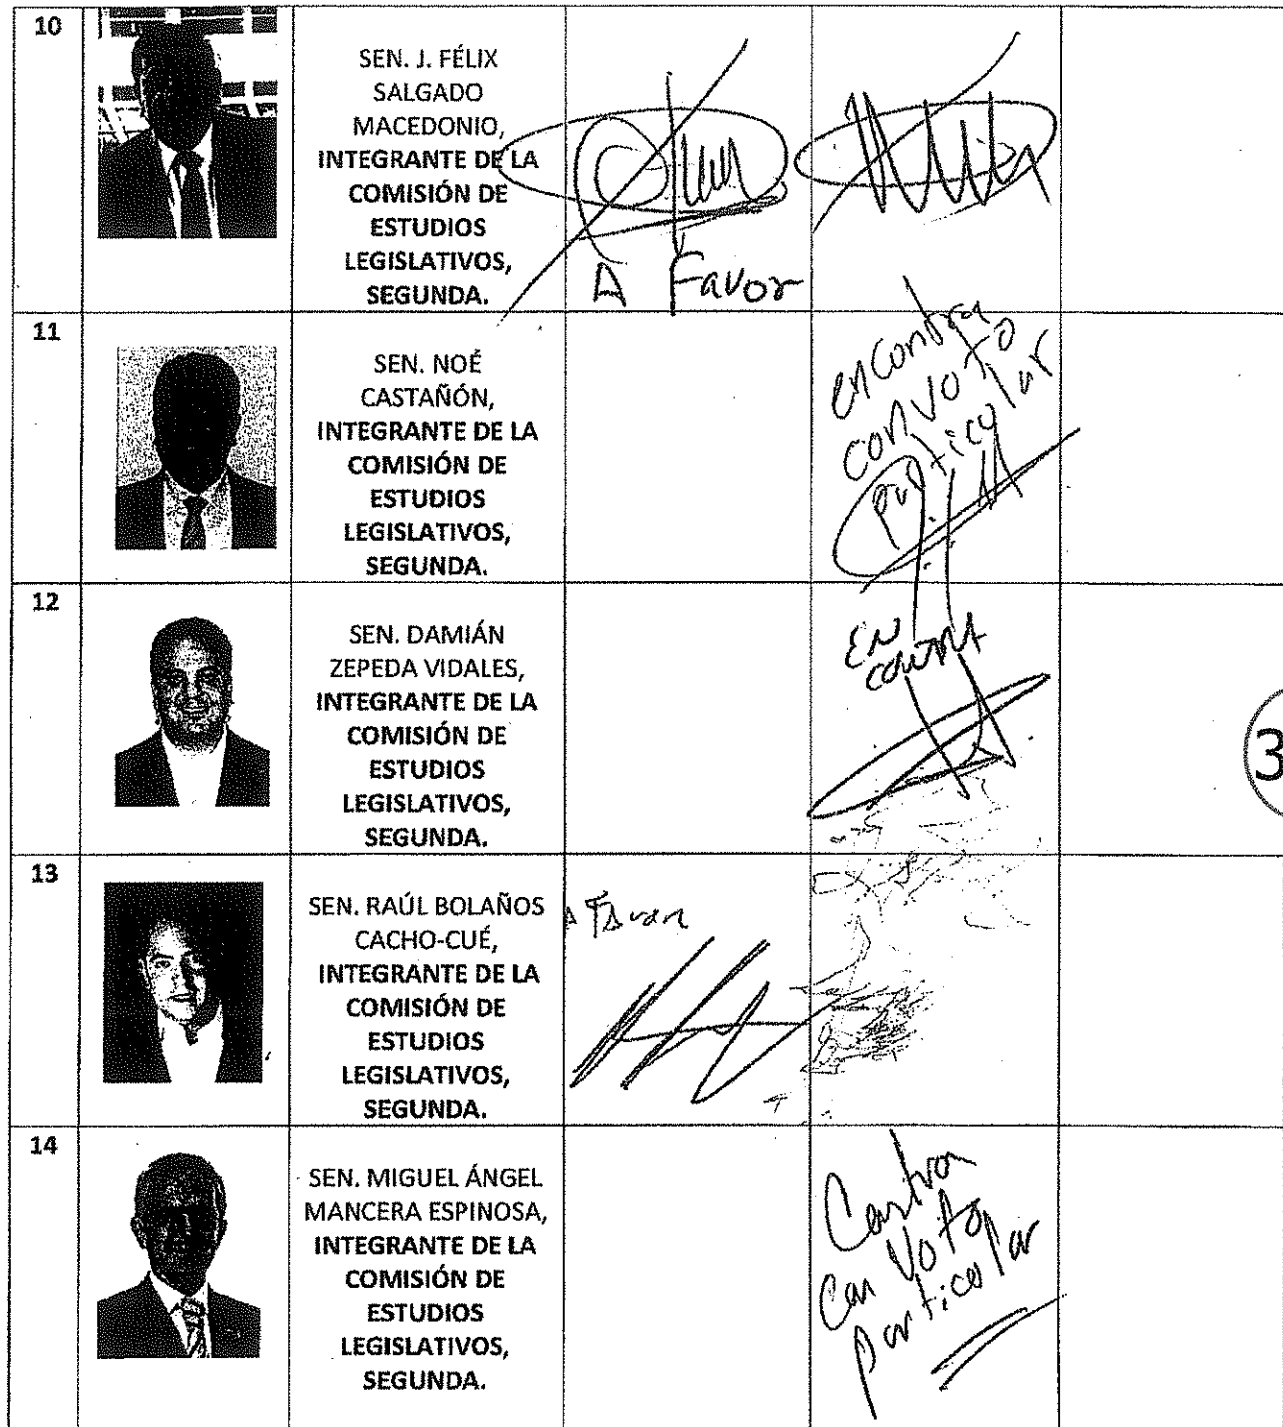 10
SEN. J. FÉLIX
SALGADO
MACEDONIO,
INTEGRANTE DE LA
COMISIÓN DE
ESTUDIOS
LEGISLATIVOS,
SEGUNDA.
A Favor
11
SEN. NOÉ
CASTAÑÓN,
INTEGRANTE DE LA
COMISIÓN DE
ESTUDIOS
LEGISLATIVOS,
SEGUNDA.
en contra
con voto
particular
12
SEN. DAMIÁN
ZEPEDA VIDALES,
INTEGRANTE DE LA
COMISIÓN DE
ESTUDIOS
LEGISLATIVOS,
SEGUNDA.
EN
CONTRA
3
13
SEN. RAÚL BOLAÑOS
CACHO-CUÉ,
INTEGRANTE DE LA
COMISIÓN DE
ESTUDIOS
LEGISLATIVOS,
SEGUNDA.
A Favor
14
SEN. MIGUEL ÁNGEL
MANCERA ESPINOSA,
INTEGRANTE DE LA
COMISIÓN DE
ESTUDIOS
LEGISLATIVOS,
SEGUNDA.
Contra
con Voto
particular